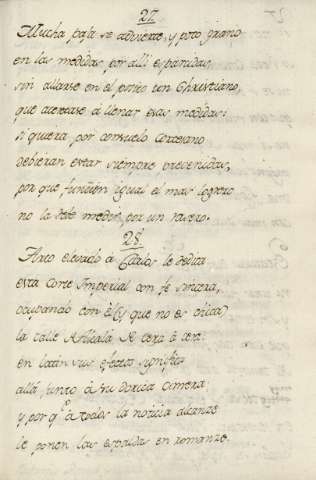 27.
Mucha paja se advierte, y poco grano
en las medidas por alli esparcidas,
sin allarse en el portico un Christiano,
que acertase á llenar esas medidas:
si quiera, por consuelo Cortesano
debieran estar siempre prevenidas,
por que funcion igual el mas logrero
no la mede, por un rasero.
28.
Arco elevado á Carlos le dedica
esta Corte Imperial con fe sincera,
ocupando con el (y que no es chica)
la calle Alcala de cera á cera.
en latin sus efectos significa
allá junto á su dorica cimera
y por q.e á todos la noticia alcanze
le ponen las espaldas en romanze.